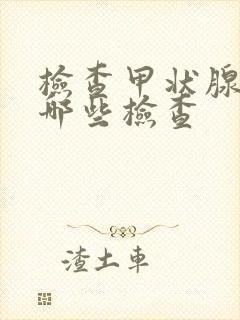 檢查甲状腺
哪些檢查
渣土車